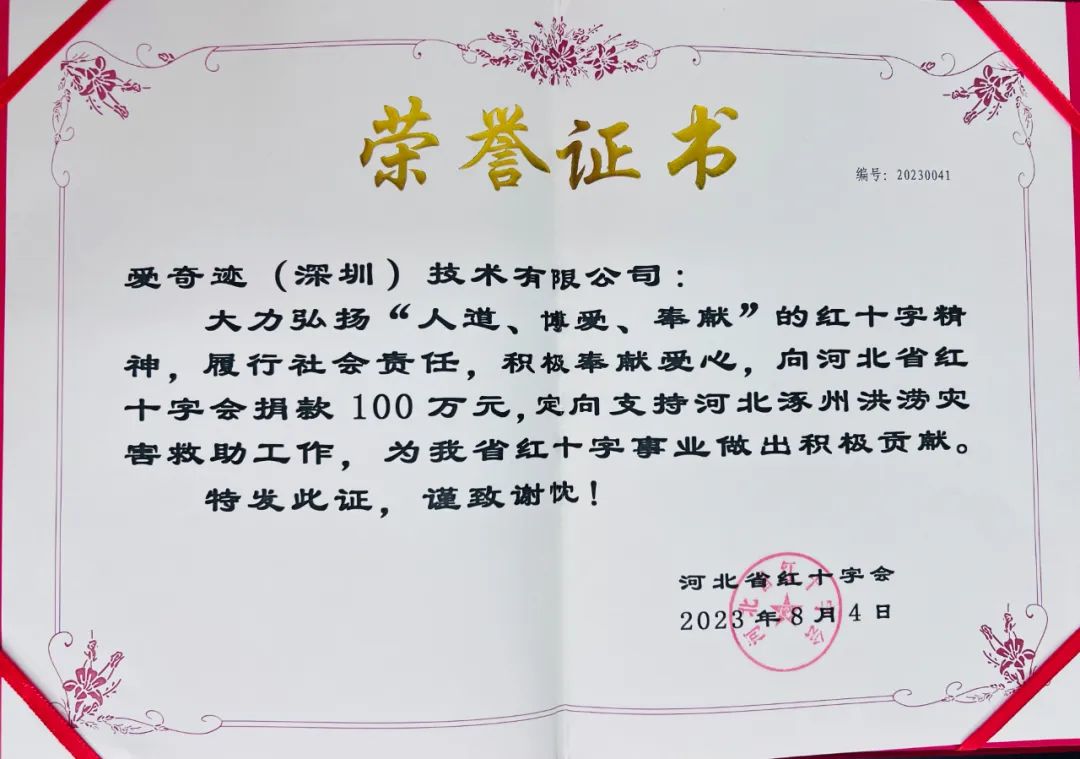 荣誉证书
编号：20230041
爱奇迹（深圳）技术有限公司：
大力弘扬“人道、博爱、奉献”的红十字精
神，履行社会责任，积极奉献爱心，向河北省红
十字会捐款 100 万元，定向支持河北涿州洪涝灾
害救助工作，为我省红十字事业做出积极贡献。
特发此证，谨致谢忱！
河北省红十字会
2023 年 8 月 4 日
河北省红十字会